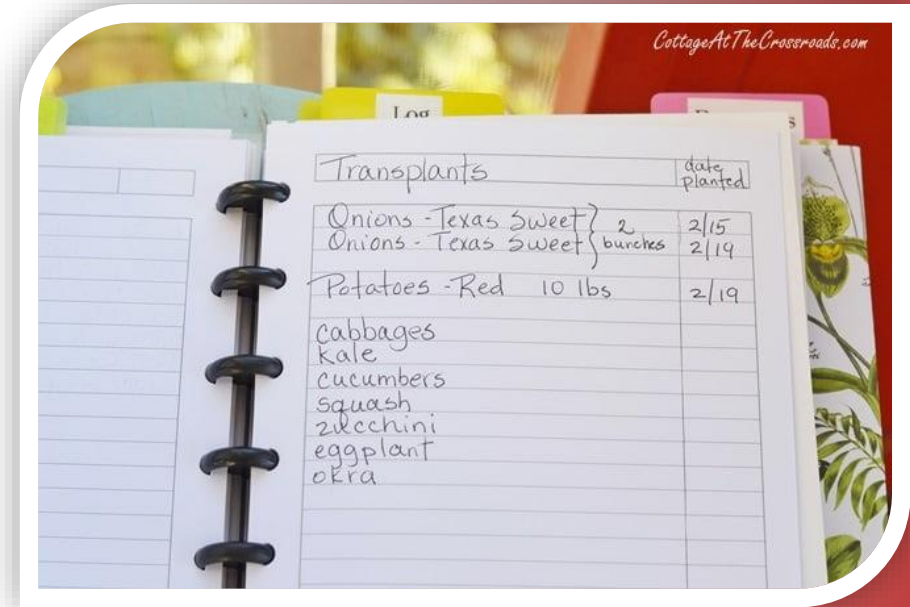 CottageAtTheCrossroads.com
Log
Transplants date planted
Onions - Texas Sweet } 2 bunches 2/15
Onions - Texas Sweet 2/19
Potatoes - Red 10 lbs 2/19
cabbages
kale
cucumbers
squash
zucchini
eggplant
okra